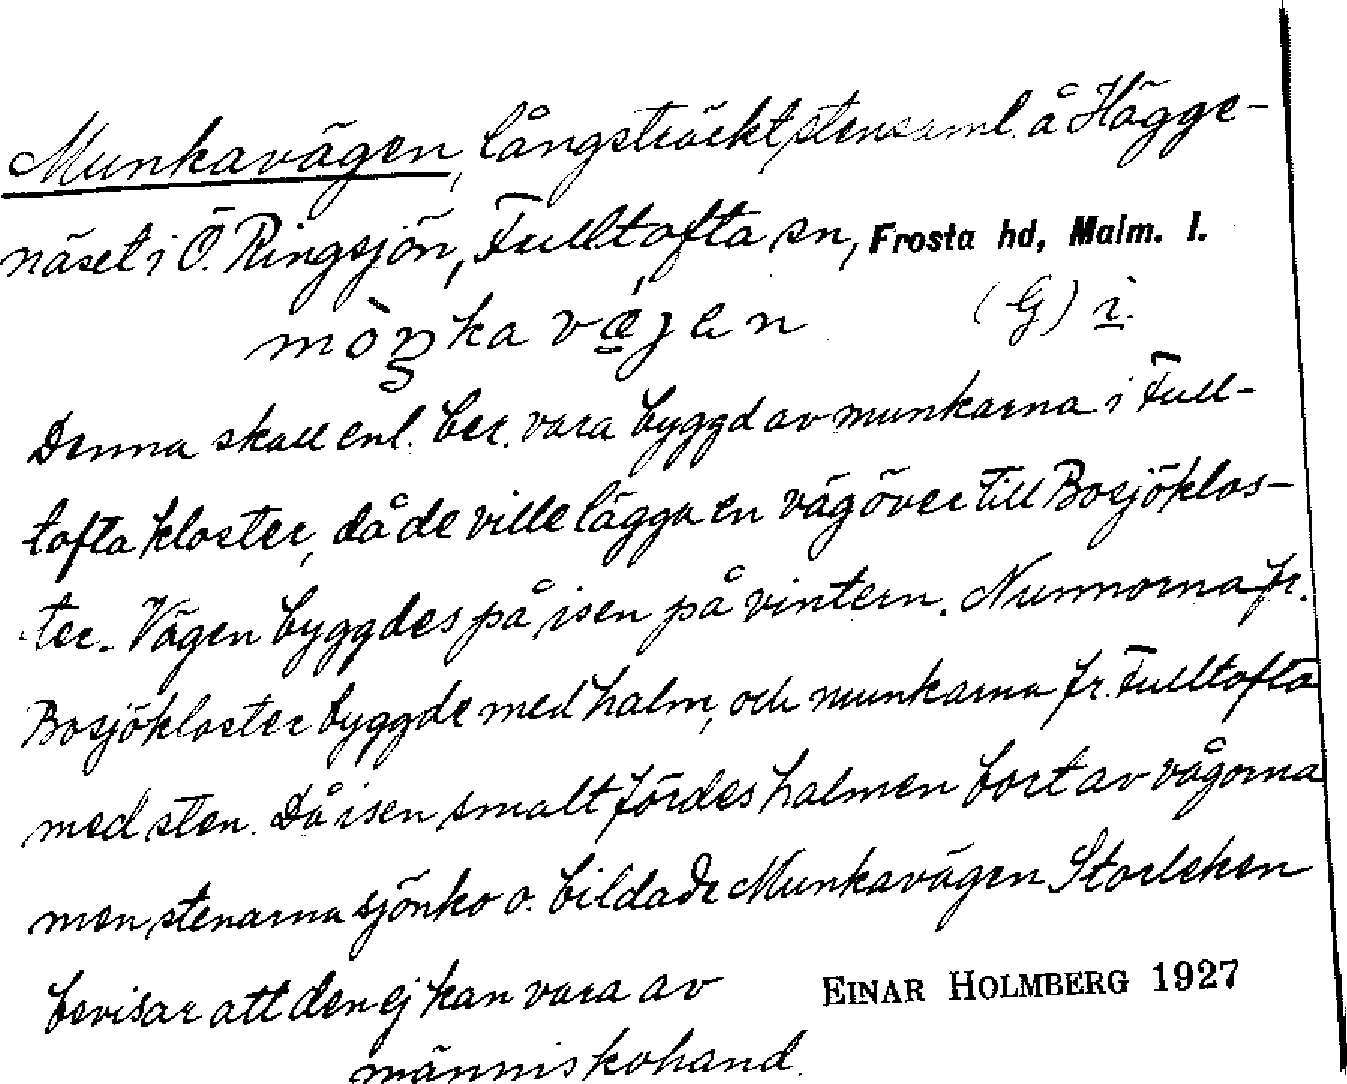 Munkavägen, långsträckt stensaml. å Hägge-
näset i Ö. Ringsjön, Fulltofta sn, Frosta hd, Malm. l.
(G) i.
Denna skall enl. ber. vara byggd av munkarna i Full-
tofta kloster, då de ville lägga en väg över till Bosjöklos-
ter. Vägen byggdes på isen på vintern. Nunnorna fr.
Bosjökloster byggde med halm, och munkarna fr. Fulltofta
med sten. Då isen smalt fördes halmen bort av vågorna
men stenarna sjönko o. bildade Munkavägen Storleken
bevisar att den ej kan vara av EINAR HOLMBERG 1927
människohand.